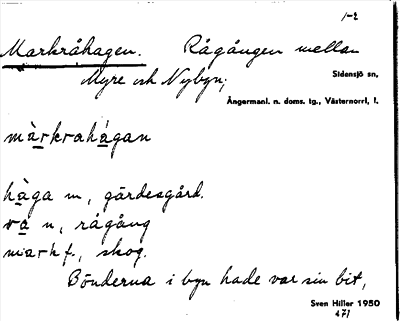 1-2
Markråhagen. Rågången mellan
Myre och Nybyn;
Sidensjö sn,
Ångermanl. n. doms. tg., Västernorrl. l.
màrkrahàgan
hàga m, gärdesgård.
ra n, rågång
mark f., skog.
Bönderna i byn hade var sin bit,
Sven Hiller 1950
471